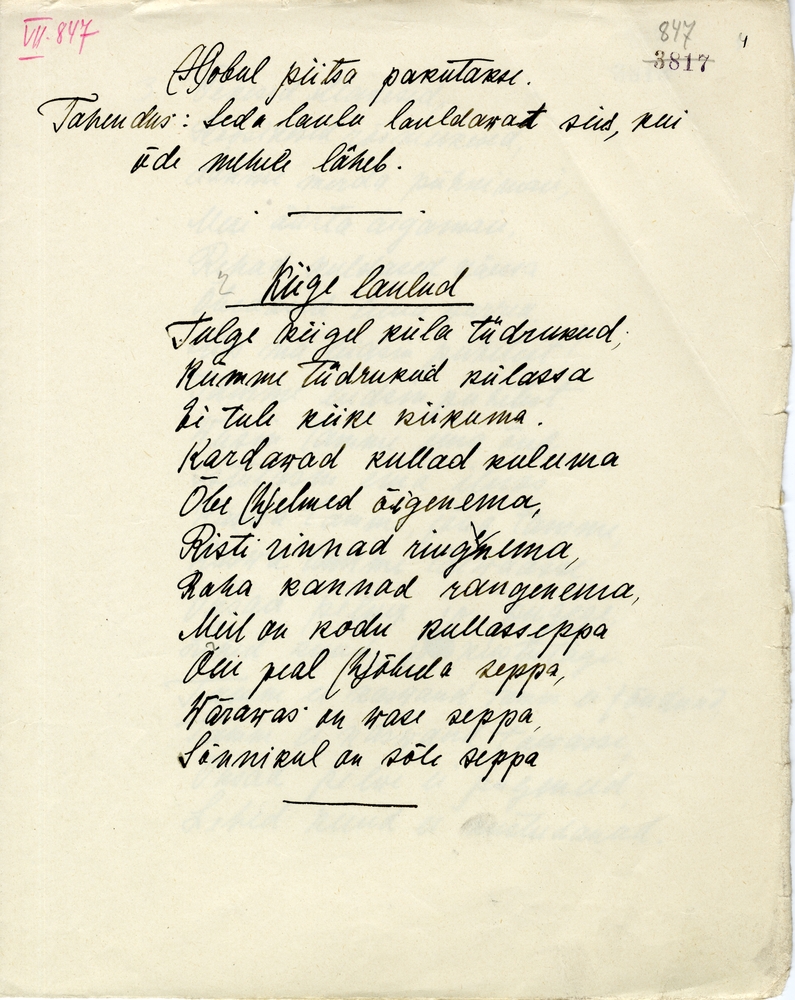 VII. 847
847
3817
4
(H)obul piitsa pakutakse.
Tähendus: Seda laulu lauldawat siis, kui
õde mehele läheb.
Kiige laulud
Tulge kiigel küla tüdrukud,
Kümme tüdrukud külassa
Ei tule kiike kiikuma.
Kardawad kullad kuluma
Õbe (h)elmed õigenema,
Risti rinnad ringenema,
Raha kannad rangenema,
Meil on kodu kullasseppa
Õue peal (h)õbeda seppa,
Wärawas on wase seppa,
Sõnnikul on sõle seppa